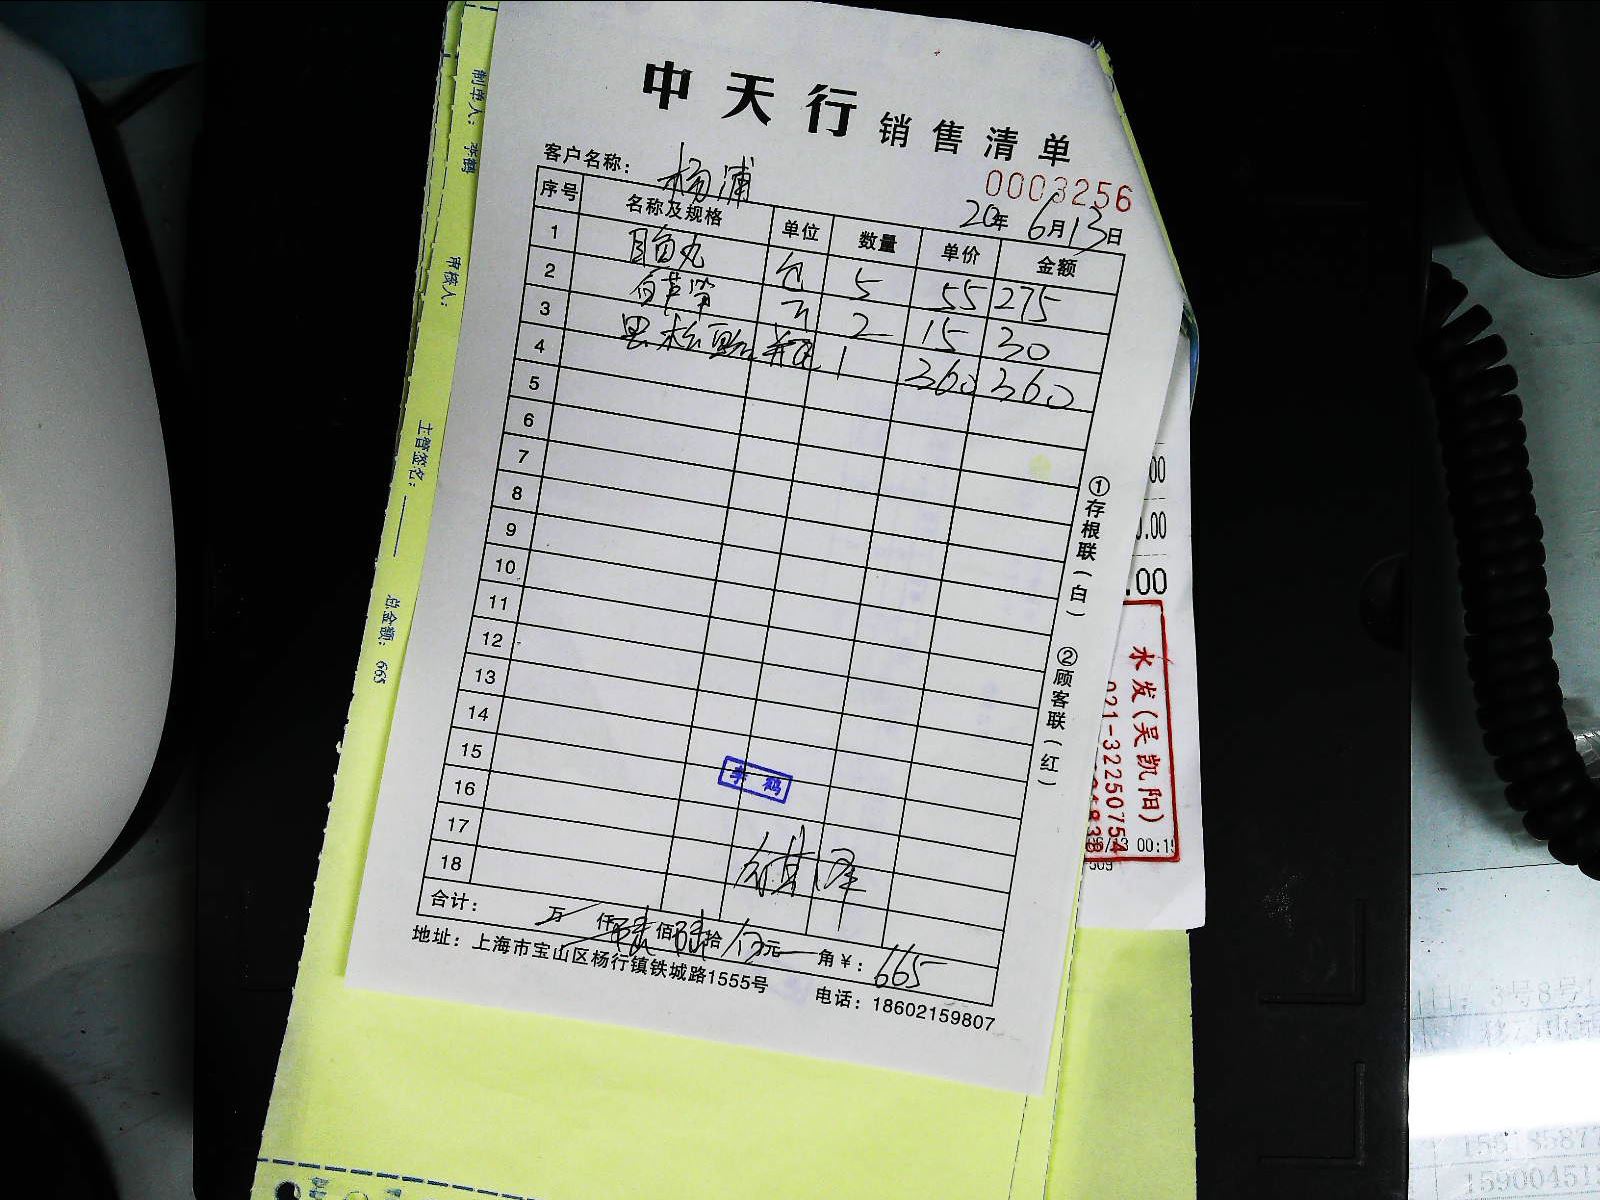 中天行 销售清单
客户名称： 杨浦
0003256
20年 6月13日
序号 名称及规格 单位 数量 单价 金额
1 目鱼丸 包 5 55 275
2 白芦笋 2 15 30
3 黑松露 瓶 1 360 360
4
5
6
7
8
9
10
11
12
13
14
15
16
17
18
李鹤
合计： 万 仟 陆佰 陆拾 伍元 角¥： 665
地址：上海市宝山区杨行镇铁城路1555号
电话：18602159807
①存根联（白） ②顾客联（红）
制单人： 李鹤
审核人：
主管签名：
总金额： 665
.00
水发(吴凯阳)
021-32250754